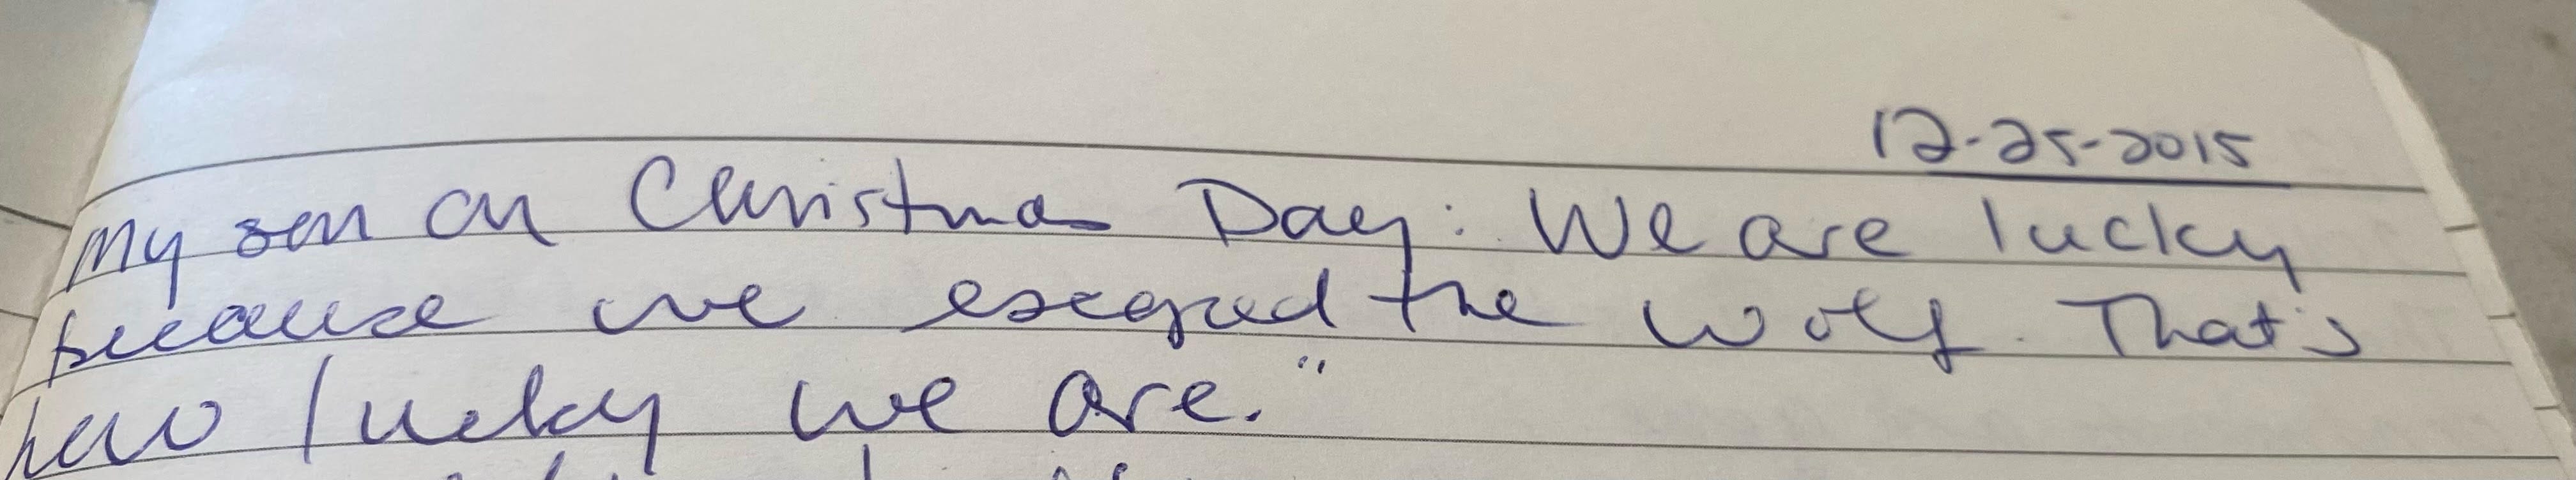 12-25-2015
My son on Christmas Day: We are lucky
because we escaped the wolf. That's
how lucky we are."